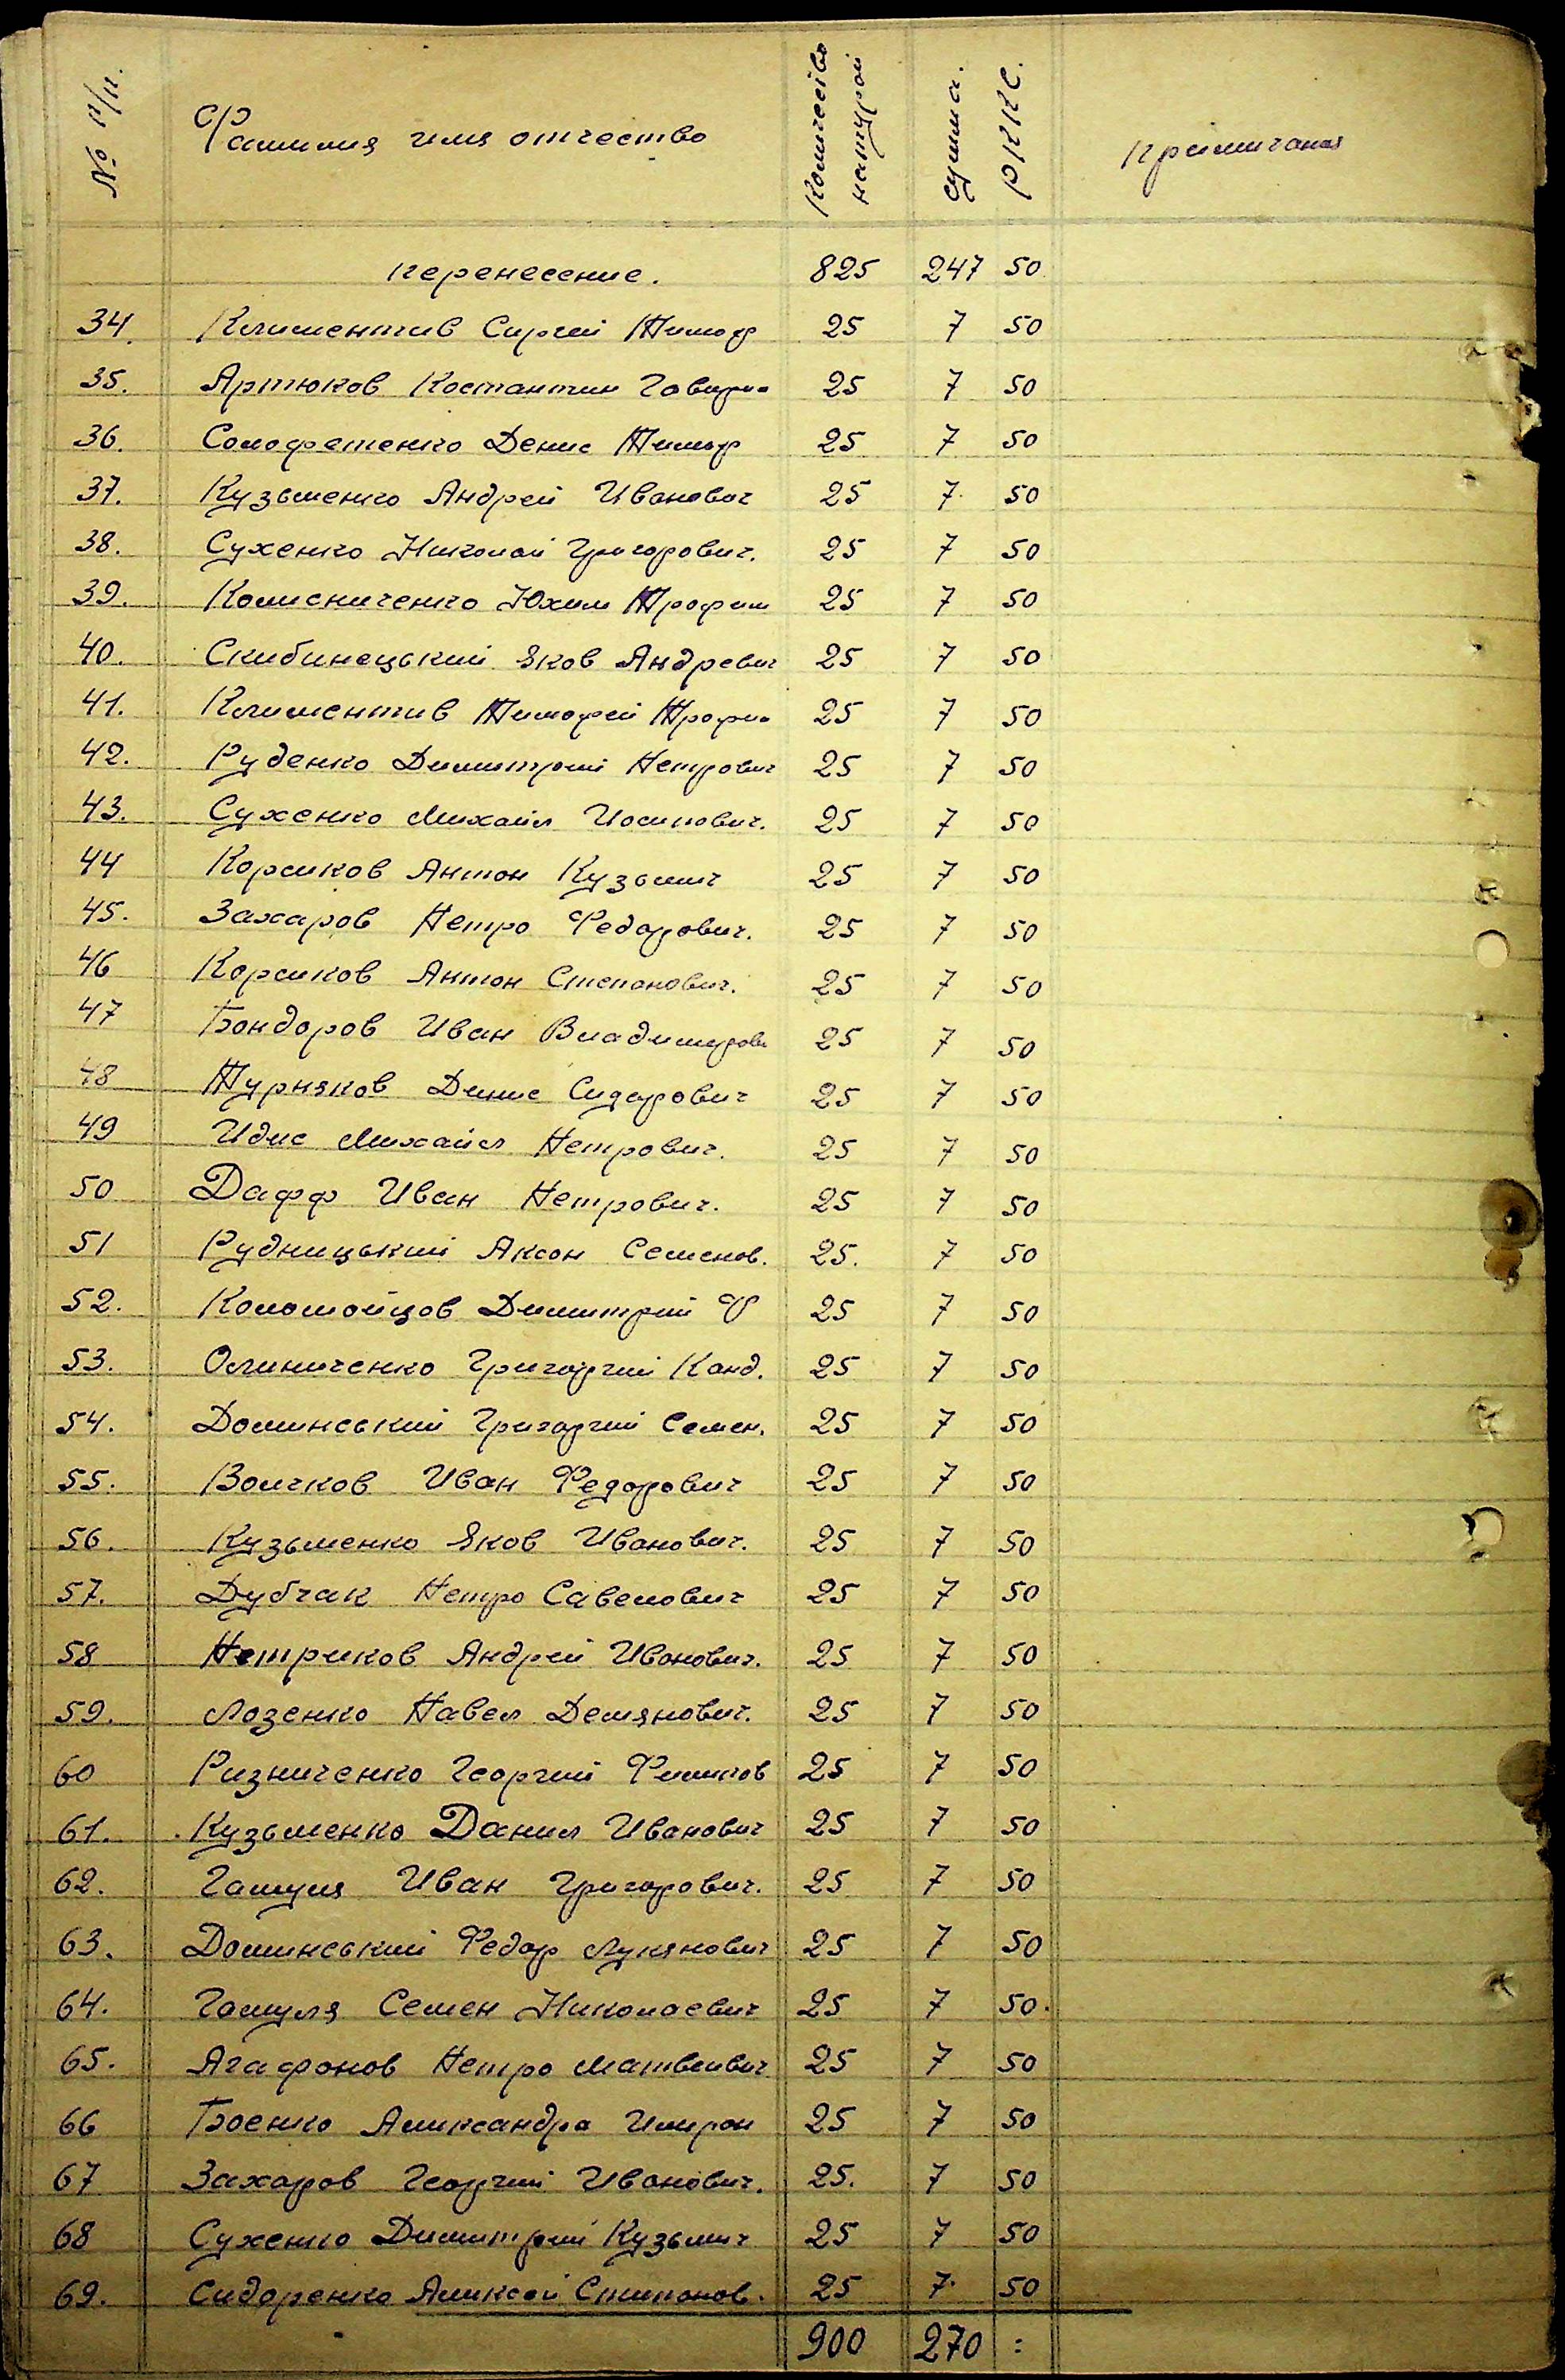 № п/п. Фамилия имя отчество Количество натурой сумма. РККС. Примичаная
перенесение. 825 247 50
34. Климентив Сиргей Тимоф 25 7 50
35. Артюков Костантин Гаври 25 7 50
36. Соломфетенко Денис Тимоф 25 7 50
37. Кузьменко Андрей Иванович 25 7. 50
38. Сухенко Николай Григорович. 25 7 50
39. Колисниченко Юхим Трофим 25 7 50
40. Скибинецький Яков Андревич 25 7 50
41. Климентив Тимофей Трофи 25 7 50
42. Руденко Димитрий Петрович 25 7 50
43. Сухенко Михаил Иосипович. 25 7 50
44 Корсиков Антон Кузьмич 25 7 50
45. Захаров Петро Федорович. 25 7 50
46 Корсиков Антон Степанович. 25 7 50
47 Бондоров Иван Владимирови 25 7 50
48 Турняков Динис Сидорович 25 7 50
49 Идис Михайл Петрович. 25 7 50
50 Дафф Иван Петрович. 25 7 50
51 Рудницький Аксон Семенов. 25. 7 50
52. Коломойцов Димитрий Ф 25 7 50
53. Олиниченко Григорий Канд. 25 7 50
54. Долинський Григорий Семен. 25 7 50
55. Волчков Иван Федорович 25 7 50
56. Кузьменко Яков Иванович. 25 7 50
57. Дубчак Петро Савелович 25 7 50
58 Петриков Андрей Иванович. 25 7 50
59. Лозенко Павел Демянович. 25 7 50
60 Ризниченко Георгий Филипов 25 7 50
61. Кузьменко Данил Иванович 25 7 50
62. Гамуля Иван Григорович. 25 7 50
63. Долинський Федор Лукянович 25 7 50
64. Гамуля Семен Николаевич 25 7 50.
65. Агафонов Петро Матвеивич 25 7 50
66 Боенко Аликсандра 25 7 50
67 Захаров Георгий Иванович. 25. 7 50
68 Сухенко Димитрий Кузьмич 25 7 50
69. Сидоренко Аликсей Стипанов. 25 7. 50
900 270 :